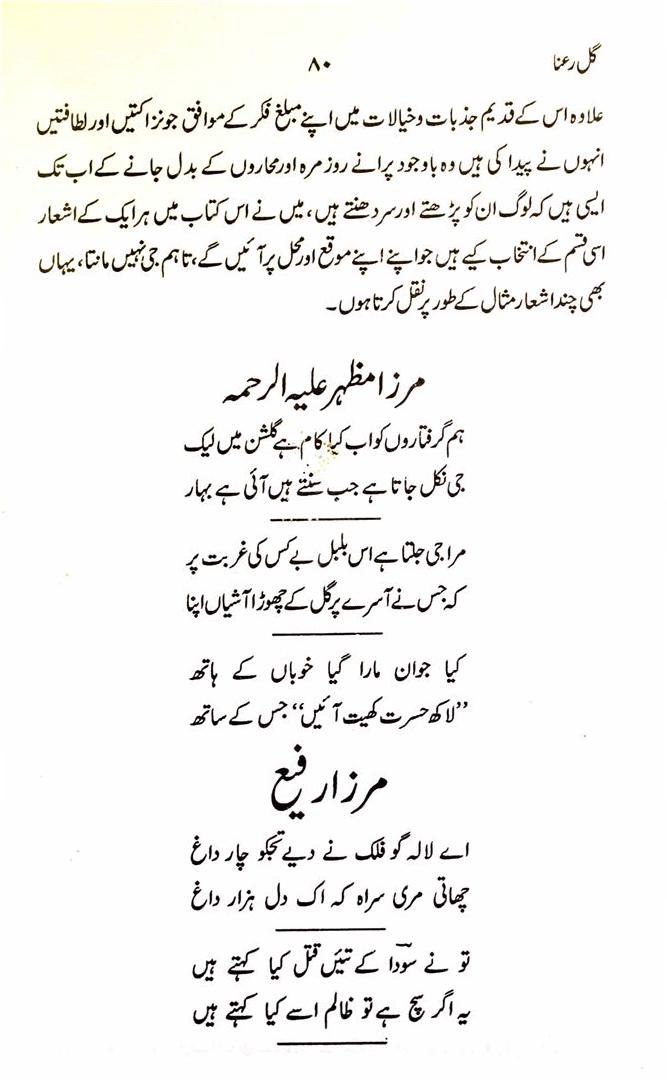 گل رعنا
۸۰
علاوہ اس کے قدیم جذبات و خیالات میں اپنے مبلغ فکر کے موافق جو نزاکتیں اور لطافتیں
انہوں نے پیدا کی ہیں وہ باوجود پرانے روز مرہ اور محاروں کے بدل جانے کے اب تک
ایسی ہیں کہ لوگ ان کو پڑھتے اور سر دھنتے ہیں، میں نے اس کتاب میں ہر ایک کے اشعار
اسی قسم کے انتخاب کیے ہیں جو اپنے اپنے موقع اور محل پر آئیں گے، تاہم جی نہیں مانتا، یہاں
بھی چند اشعار مثال کے طور پر نقل کرتا ہوں۔
مرزا مظہر علیہ الرحمہ
ہم گرفتاروں کو اب کیا کام ہے گلشن میں لیک
جی نکل جاتا ہے جب سنتے ہیں آئی ہے بہار
مرا جی جلتا ہے اس بلبل بے کس کی غربت پر
کہ جس نے آسرے پر گل کے چھوڑا آشیاں اپنا
کیا جوان مارا گیا خوباں کے ہاتھ
”لاکھ حسرت کھیت آئیں“ جس کے ساتھ
مرزا رفیع
اے لالہ گو فلک نے دیے تجکو چار داغ
چھاتی مری سراہ کہ اک دل ہزار داغ
تو نے سوؔدا کے تئیں قتل کیا کہتے ہیں
یہ اگر سچ ہے تو ظالم اسے کیا کہتے ہیں